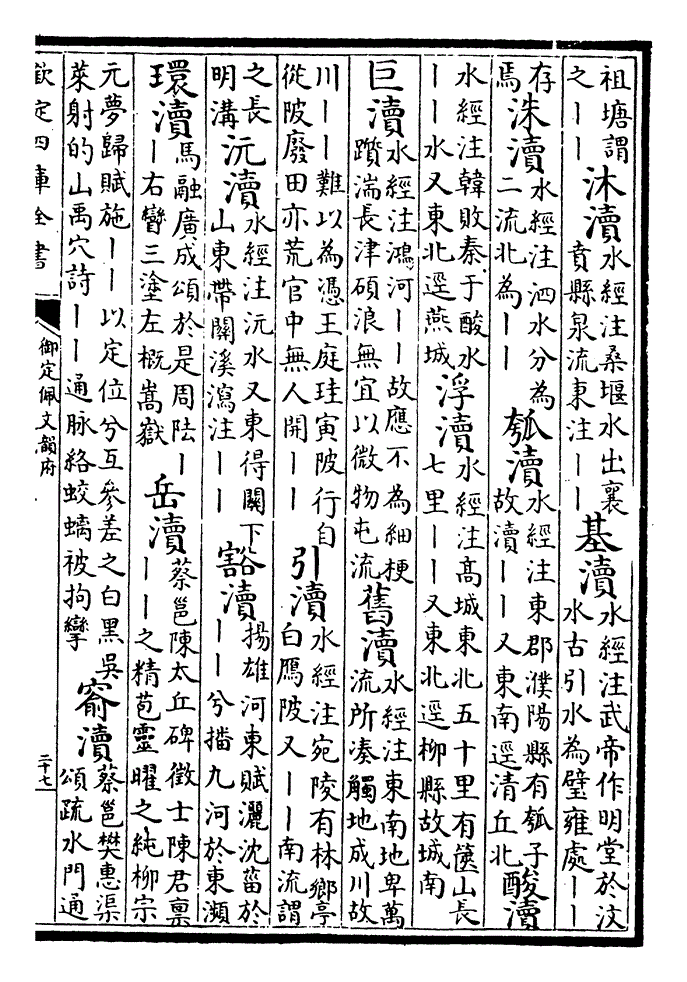 祖塘謂之丨丨沐瀆水經注桑堰水出襄賁縣泉流東注丨丨基瀆水經注武帝作明堂於汶水古引水為璧雍處丨丨
存焉洙瀆水經注泗水分為二流北為丨丨瓠瀆水經注東郡濮陽縣有瓠子故瀆丨丨又東南逕清丘北酸瀆
水經注韓敗秦于酸水丨丨水又東北逕燕城浮瀆水經注高城東北五十里有篋山長七里丨丨又東北逕柳縣故城南
巨瀆水經注鴻河丨丨故應不為細梗躓湍長津碩浪無宜以微物屯流舊瀆水經注東南地卑萬流所湊觸地成川故
川丨丨難以為憑王庭珪寅陂行自從陂廢田亦荒官中無人開丨丨引瀆水經注宛陵有林鄉亭白鴈陂又丨丨南流謂
之長明溝沅瀆水經注沅水又東得關下山東帶關溪瀉注丨丨豁瀆揚雄河東賦灑沈菑於丨丨兮播九河於東瀕
環瀆馬融廣成頌於是周阹丨丨右矕三塗左概嵩嶽岳瀆蔡邕陳太丘碑徵士陳君稟丨丨之精苞靈曜之純柳宗
元夢歸賦施丨丨以定位兮互參差之白黑吳萊射的山禹穴詩丨丨通脉絡蛟螭被拘攣窬瀆蔡邕樊惠渠頌疏水門通
欽定四庫全書
御定佩文韻府
二十七